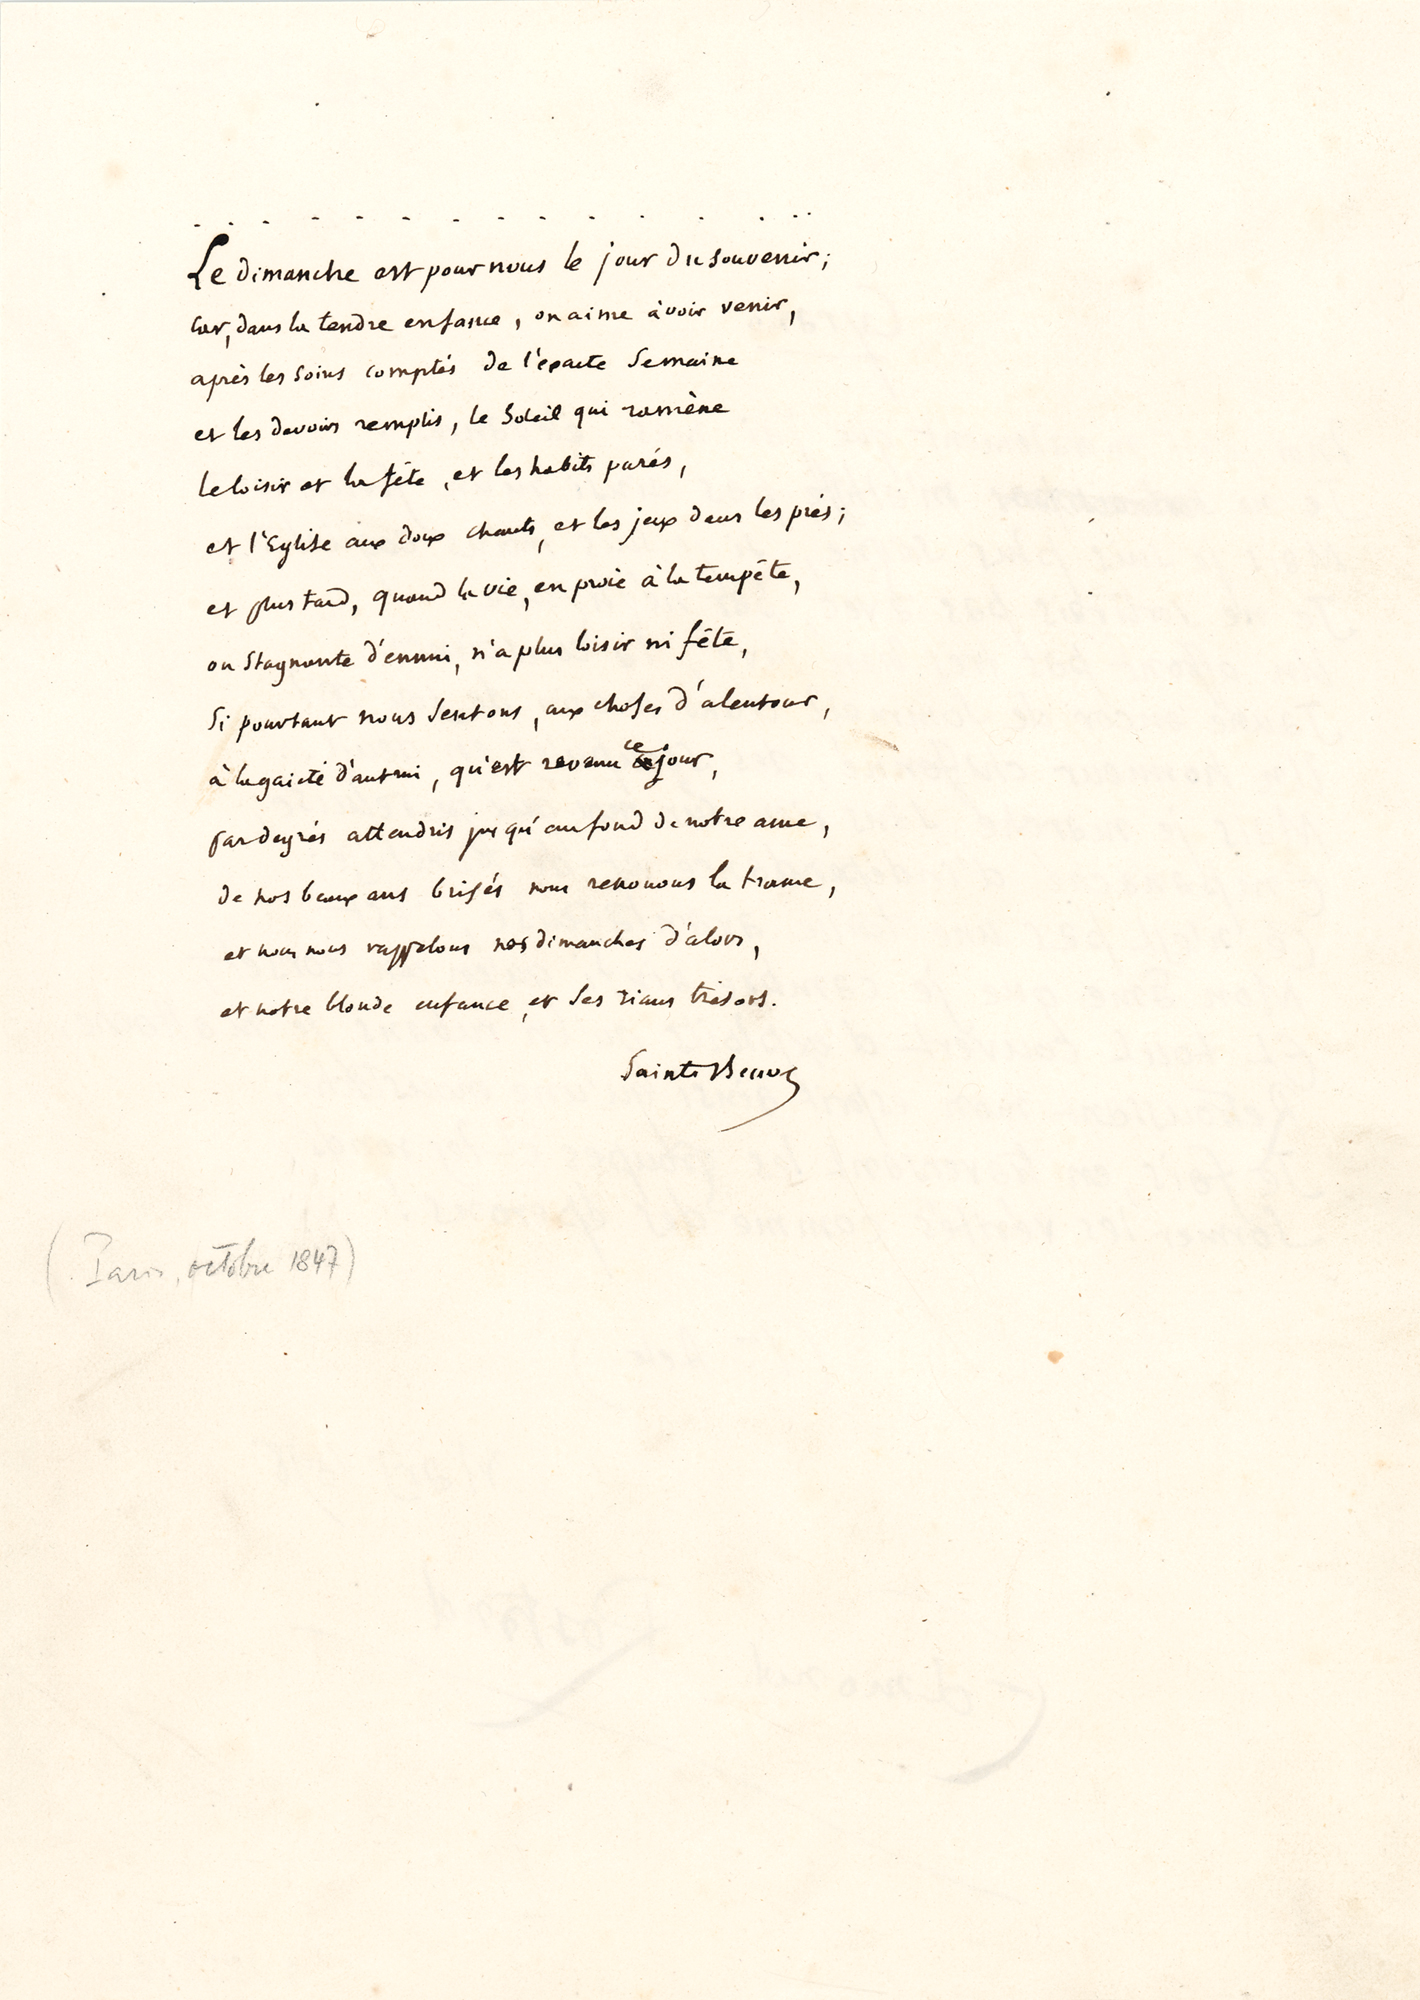 . . . . . . . . . . . . . . .
Le dimanche est pour nous le jour du souvenir;
Car, dans la tendre enfance, on aime à voir venir,
après les soins comptés de l'exacte semaine
et les devoirs remplis, le Soleil qui ramène
le loisir et la fête, et les habits parés,
et l'Eglise aux doux chants, et les jeux dans les prés;
et plus tard, quand la vie, en proie à la tempête,
ou stagnante d'ennui, n'a plus loisir ni fête,
Si pourtant nous sentons, aux choses d'alentour,
à la gaieté d'autrui, qu'est revenu ce jour,
par degrés attendris jusqu'au fond de notre ame,
de nos beaux ans brisés nous renouons la trame,
et nous nous rappelons nos dimanches d'alors,
et notre blonde enfance, et ses rians trésors.
Sainte-Beuve
(Paris, octobre 1847)